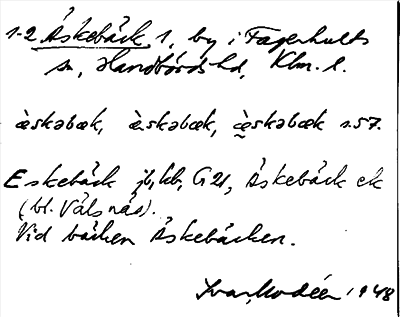 1-2 Åskebäck 1, by i Fagerhults
sn, Handbörds hd, Klm. l.
àskəbæk, æ̀skəbæk, æ̀skəbæk s. 57.
Eskebäck jb, kb, G 21, Åskebäck ek
(bl. Välsnäs).
Vid bäcken Åskebäcken.
Ivar Modéer 1948